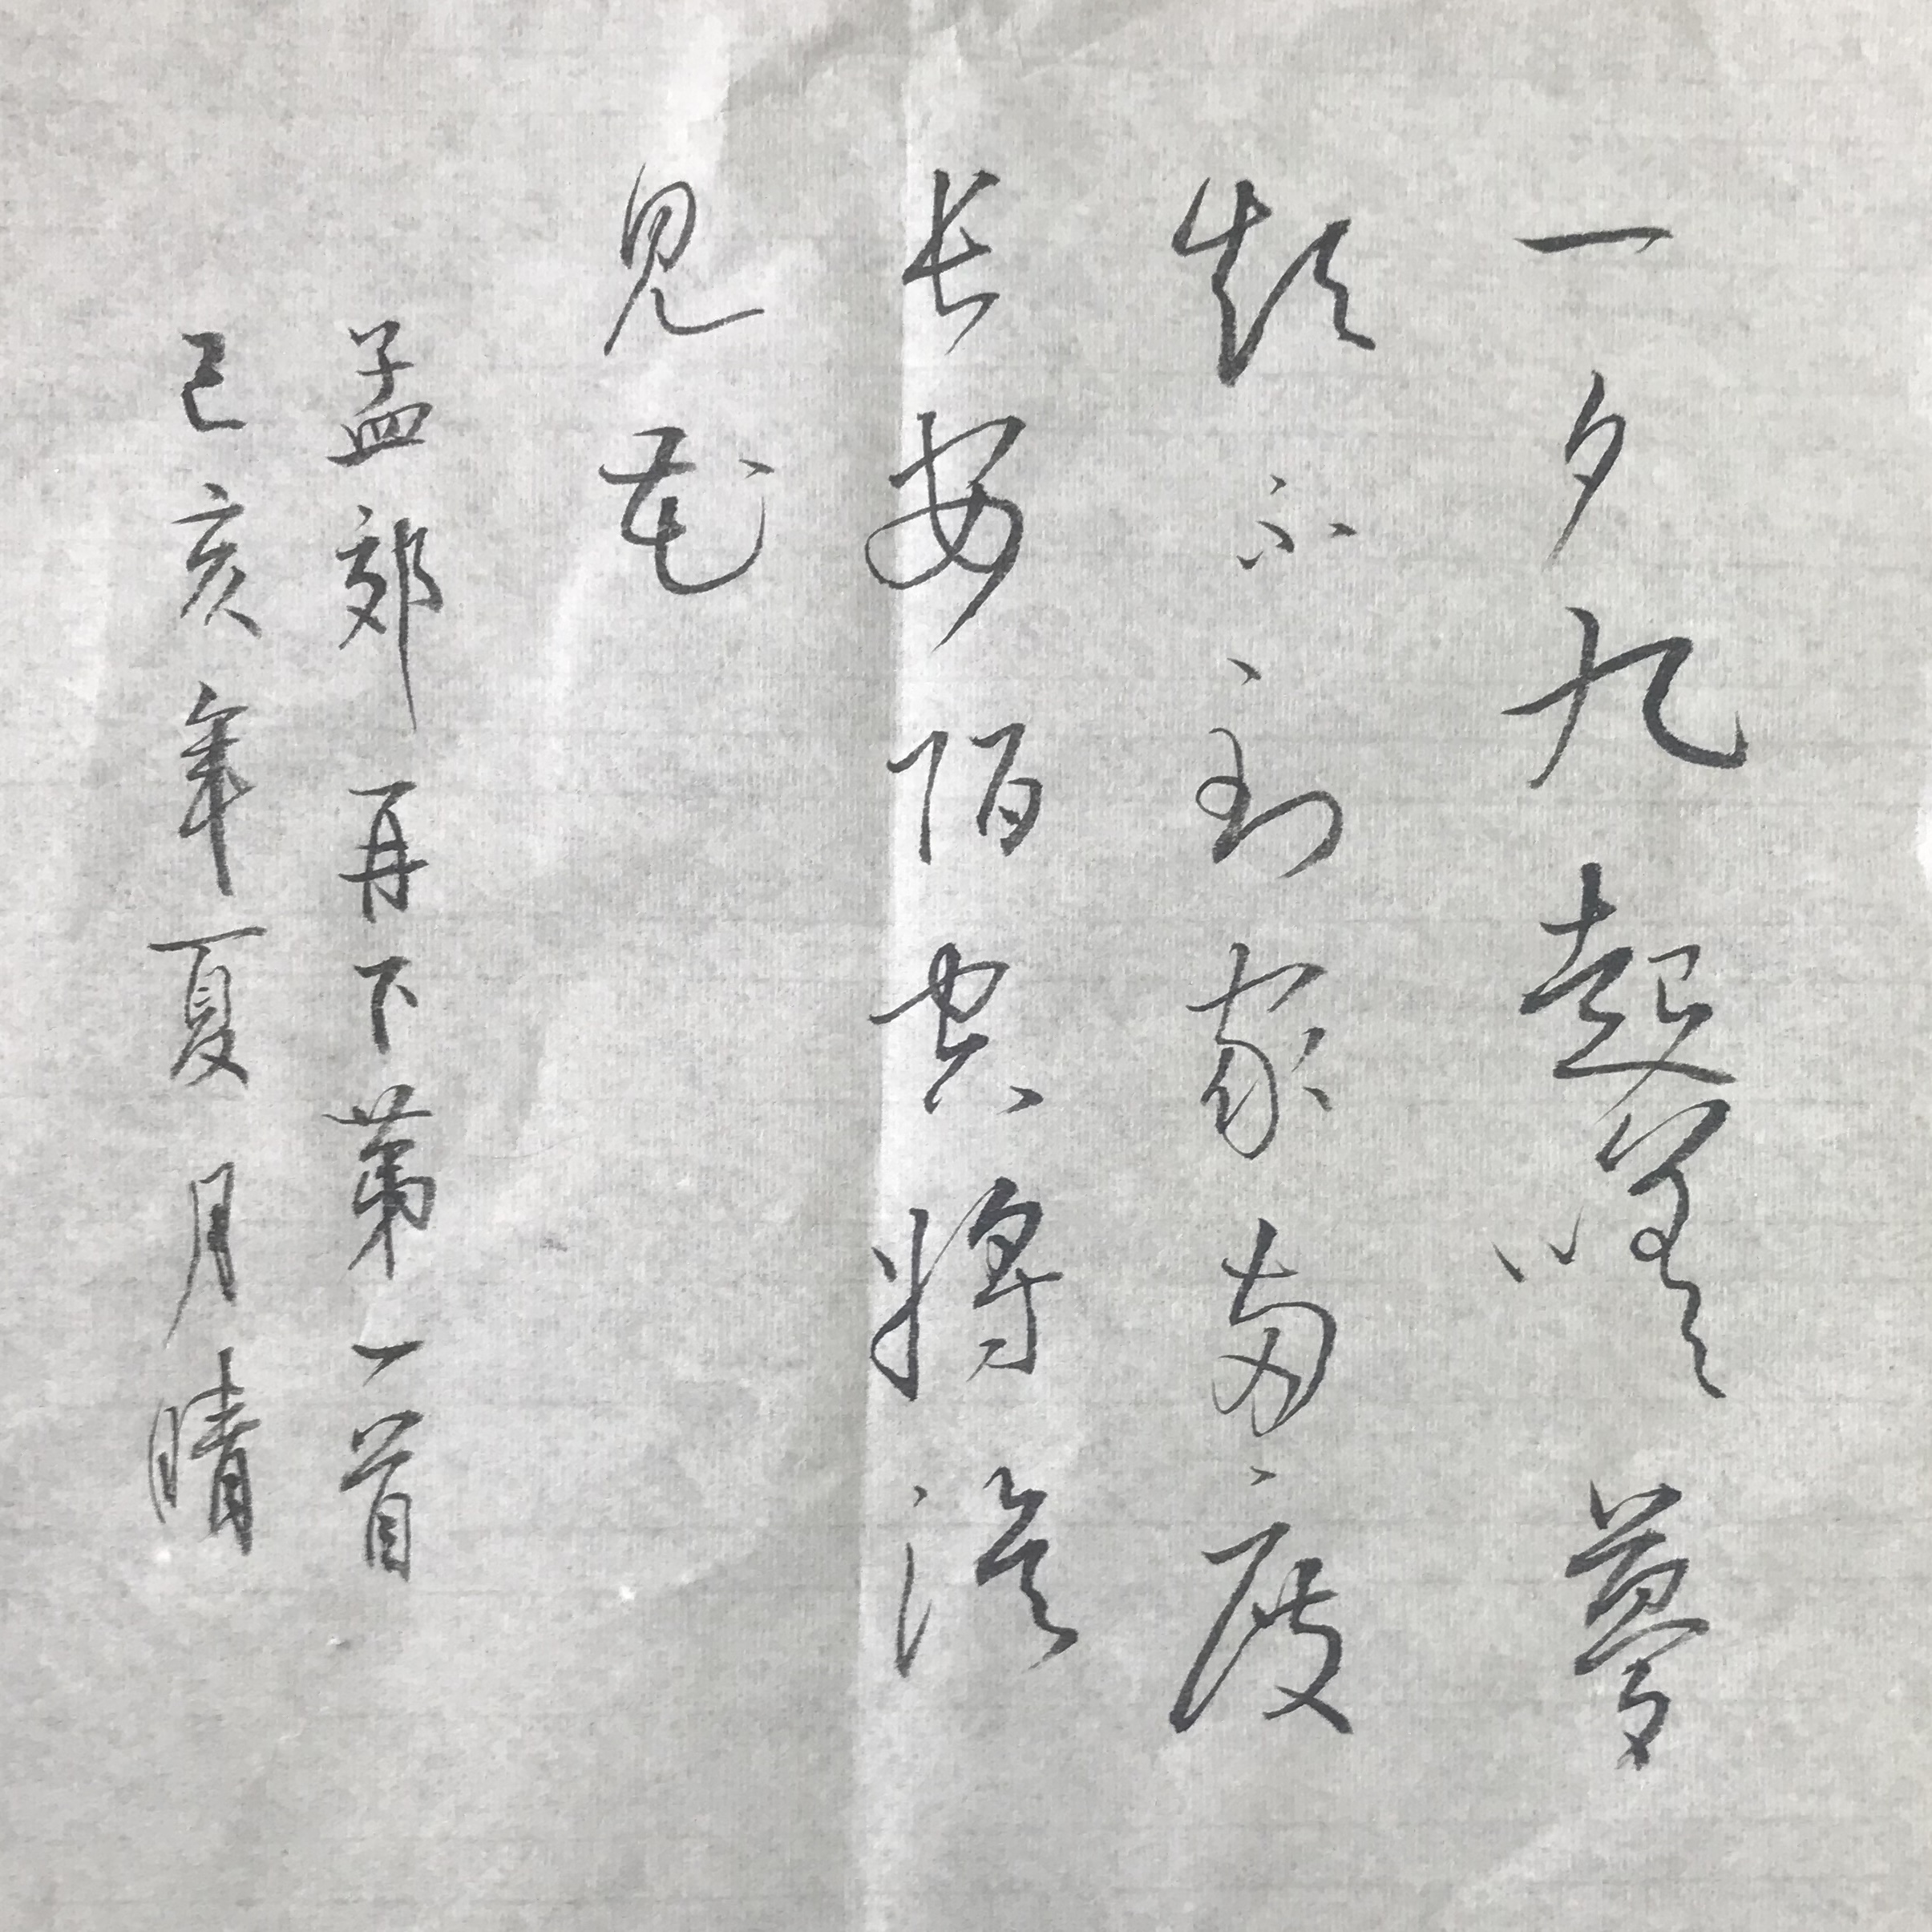 一夕九起嗟夢
短不到家兩度
長安陌空將淚
見花
孟郊再下第一首
己亥年夏月晴